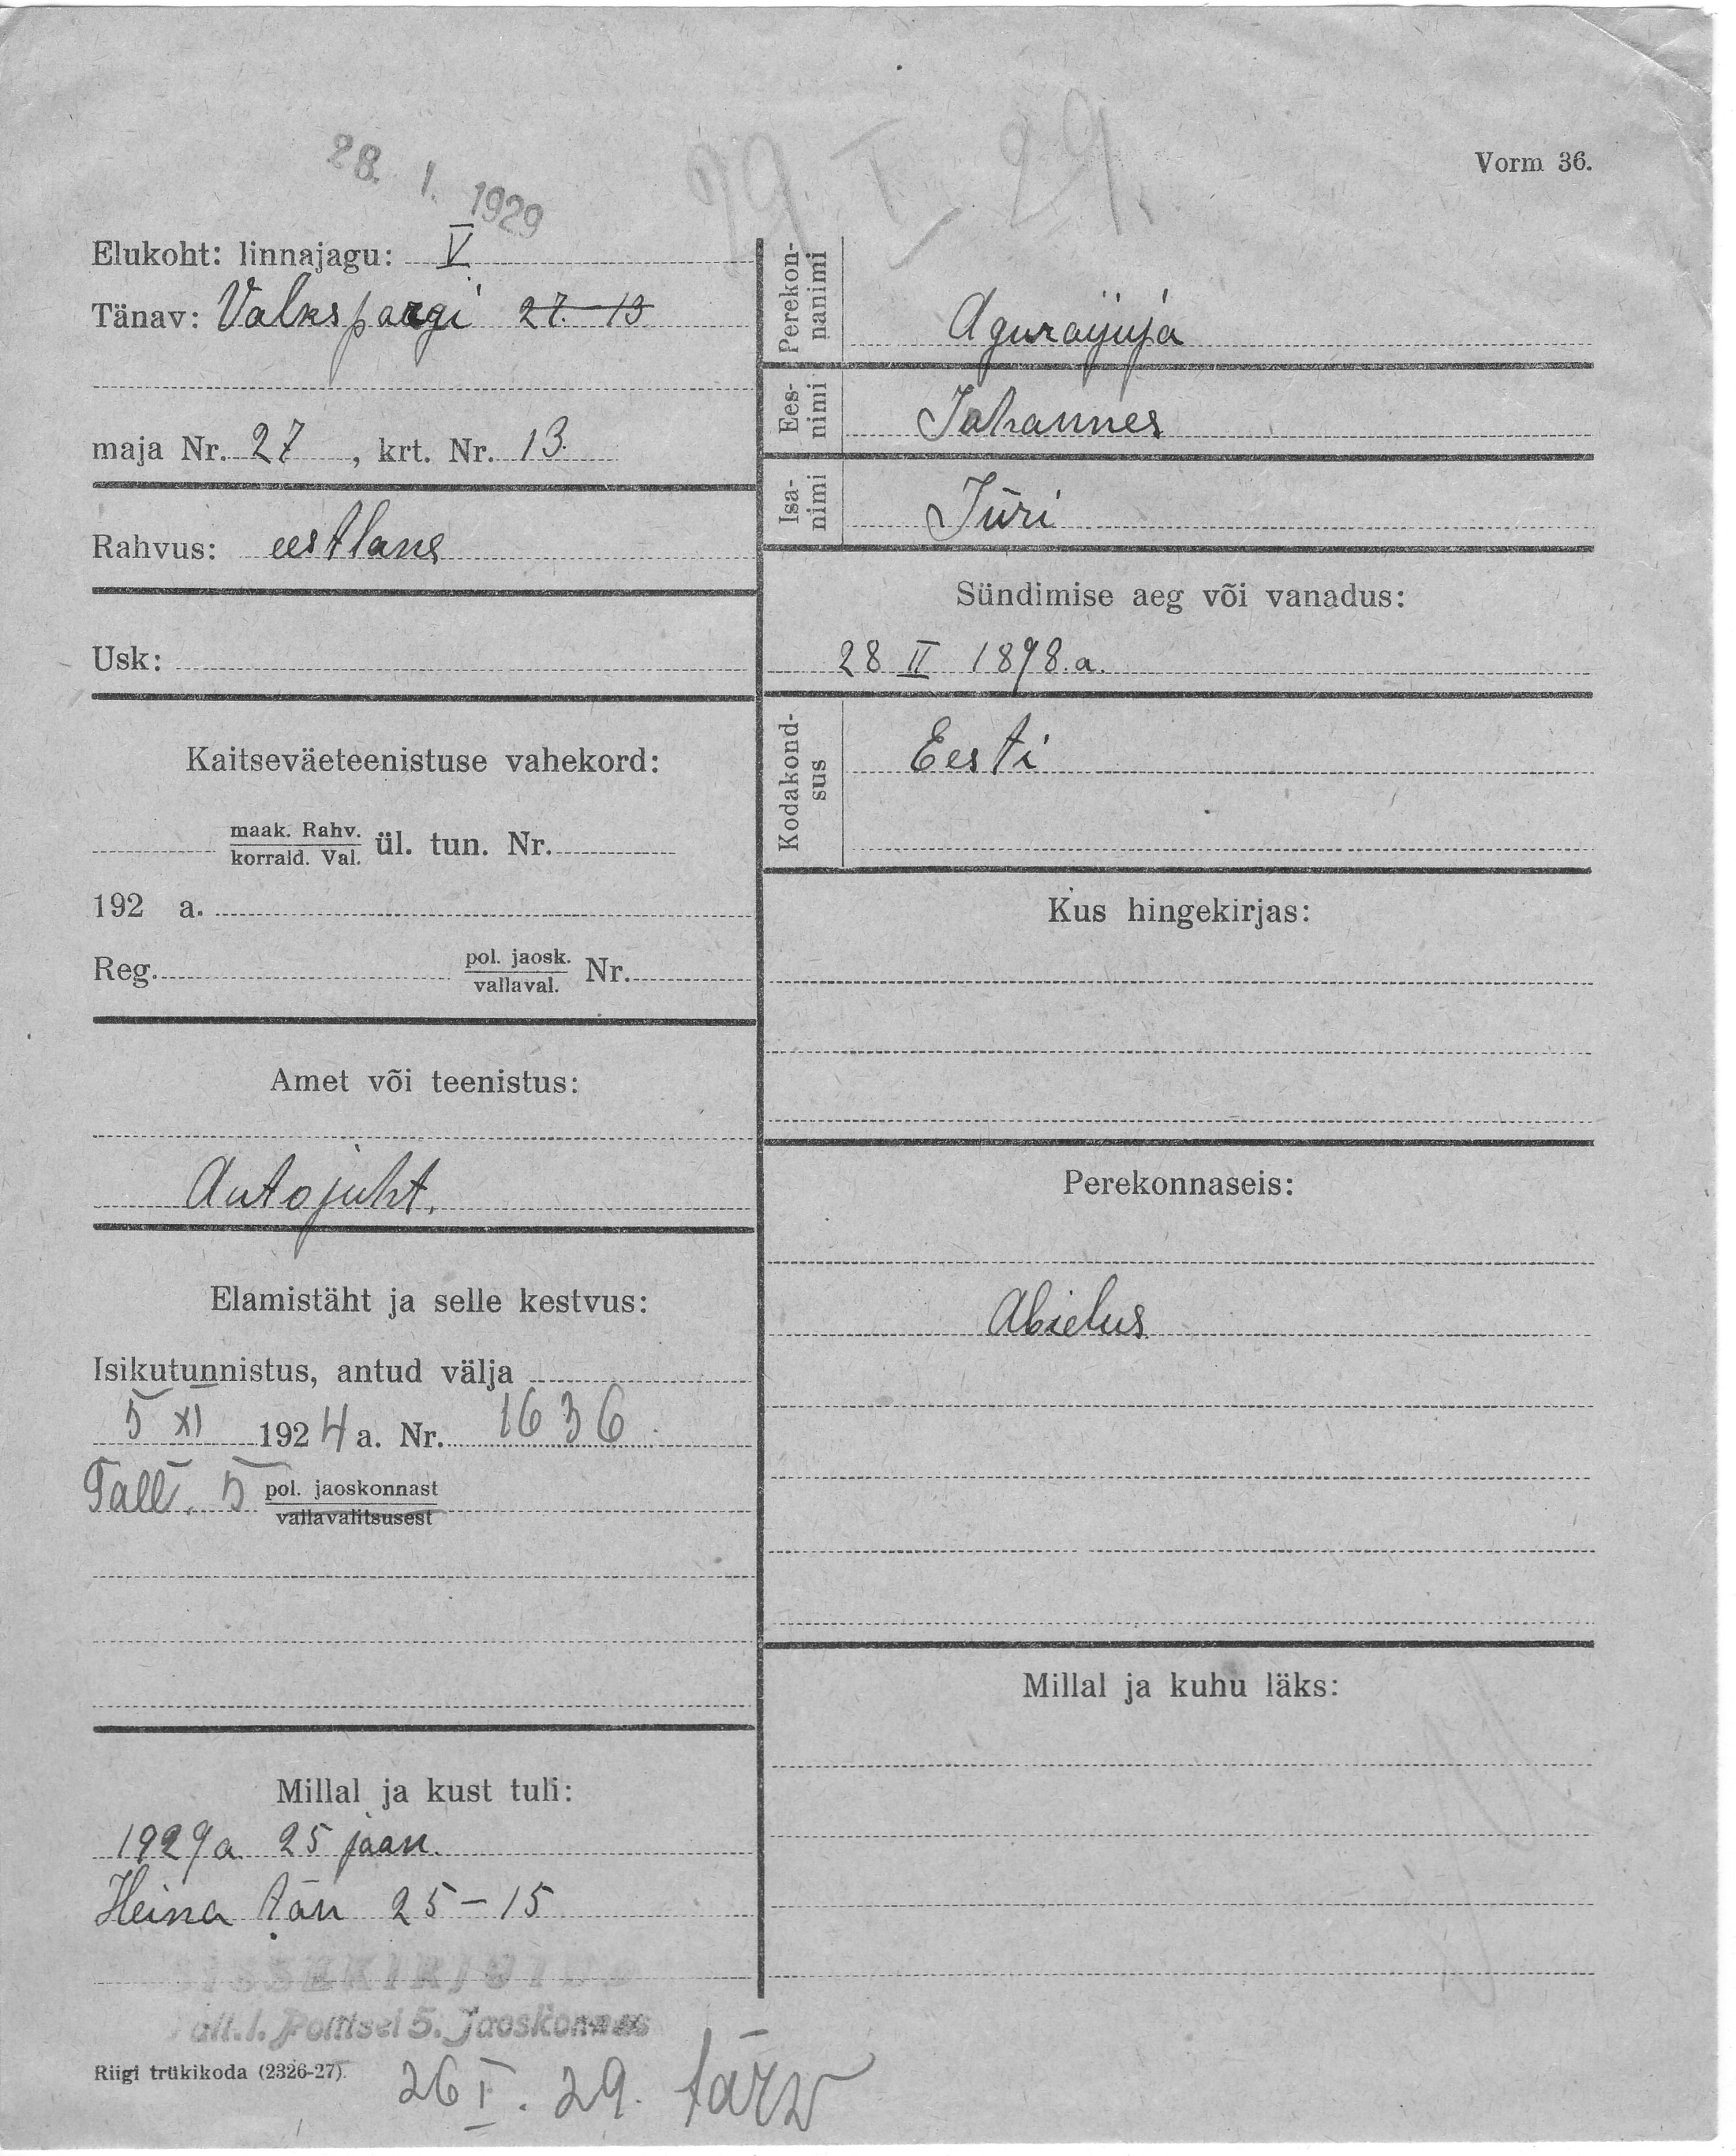 Vorm 36.
28. I. 1929
29. I 29.
Elukoht: linnajagu: V
Tänav: Valkspargi 27. 13
maja Nr. 27, krt. Nr. 13.
Rahvus: eestlane
Usk:
Kaitseväeteenistuse vahekord:
maak. Rahv.
korrald. Val. ül. tun. Nr.
192 a.
Reg. pol. jaosk.
vallaval. Nr.
Amet või teenistus:
Autojuht.
Elamistäht ja selle kestvus:
Isikutunnistus, antud välja
5 XI 1924 a. Nr. 1636
Tall. 5 pol. jaoskonnast
vallavalitsusest
Millal ja kust tuli:
1929 a 25 jaan.
Heina tän 25-15
SISSEKIRJUTUD
Tall. l. Politsei 5. Jaoskonnas
Riigi trükikoda (2326-27).
26 I. 29.
Perekon-
nanimi
Aguraijuja
Ees-
nimi
Johannes
Isa-
nimi
Jüri
Sündimise aeg või vanadus:
28 II 1898. a.
Kodakond-
sus
Eesti
Kus hingekirjas:
Perekonnaseis:
Abielus
Millal ja kuhu läks: